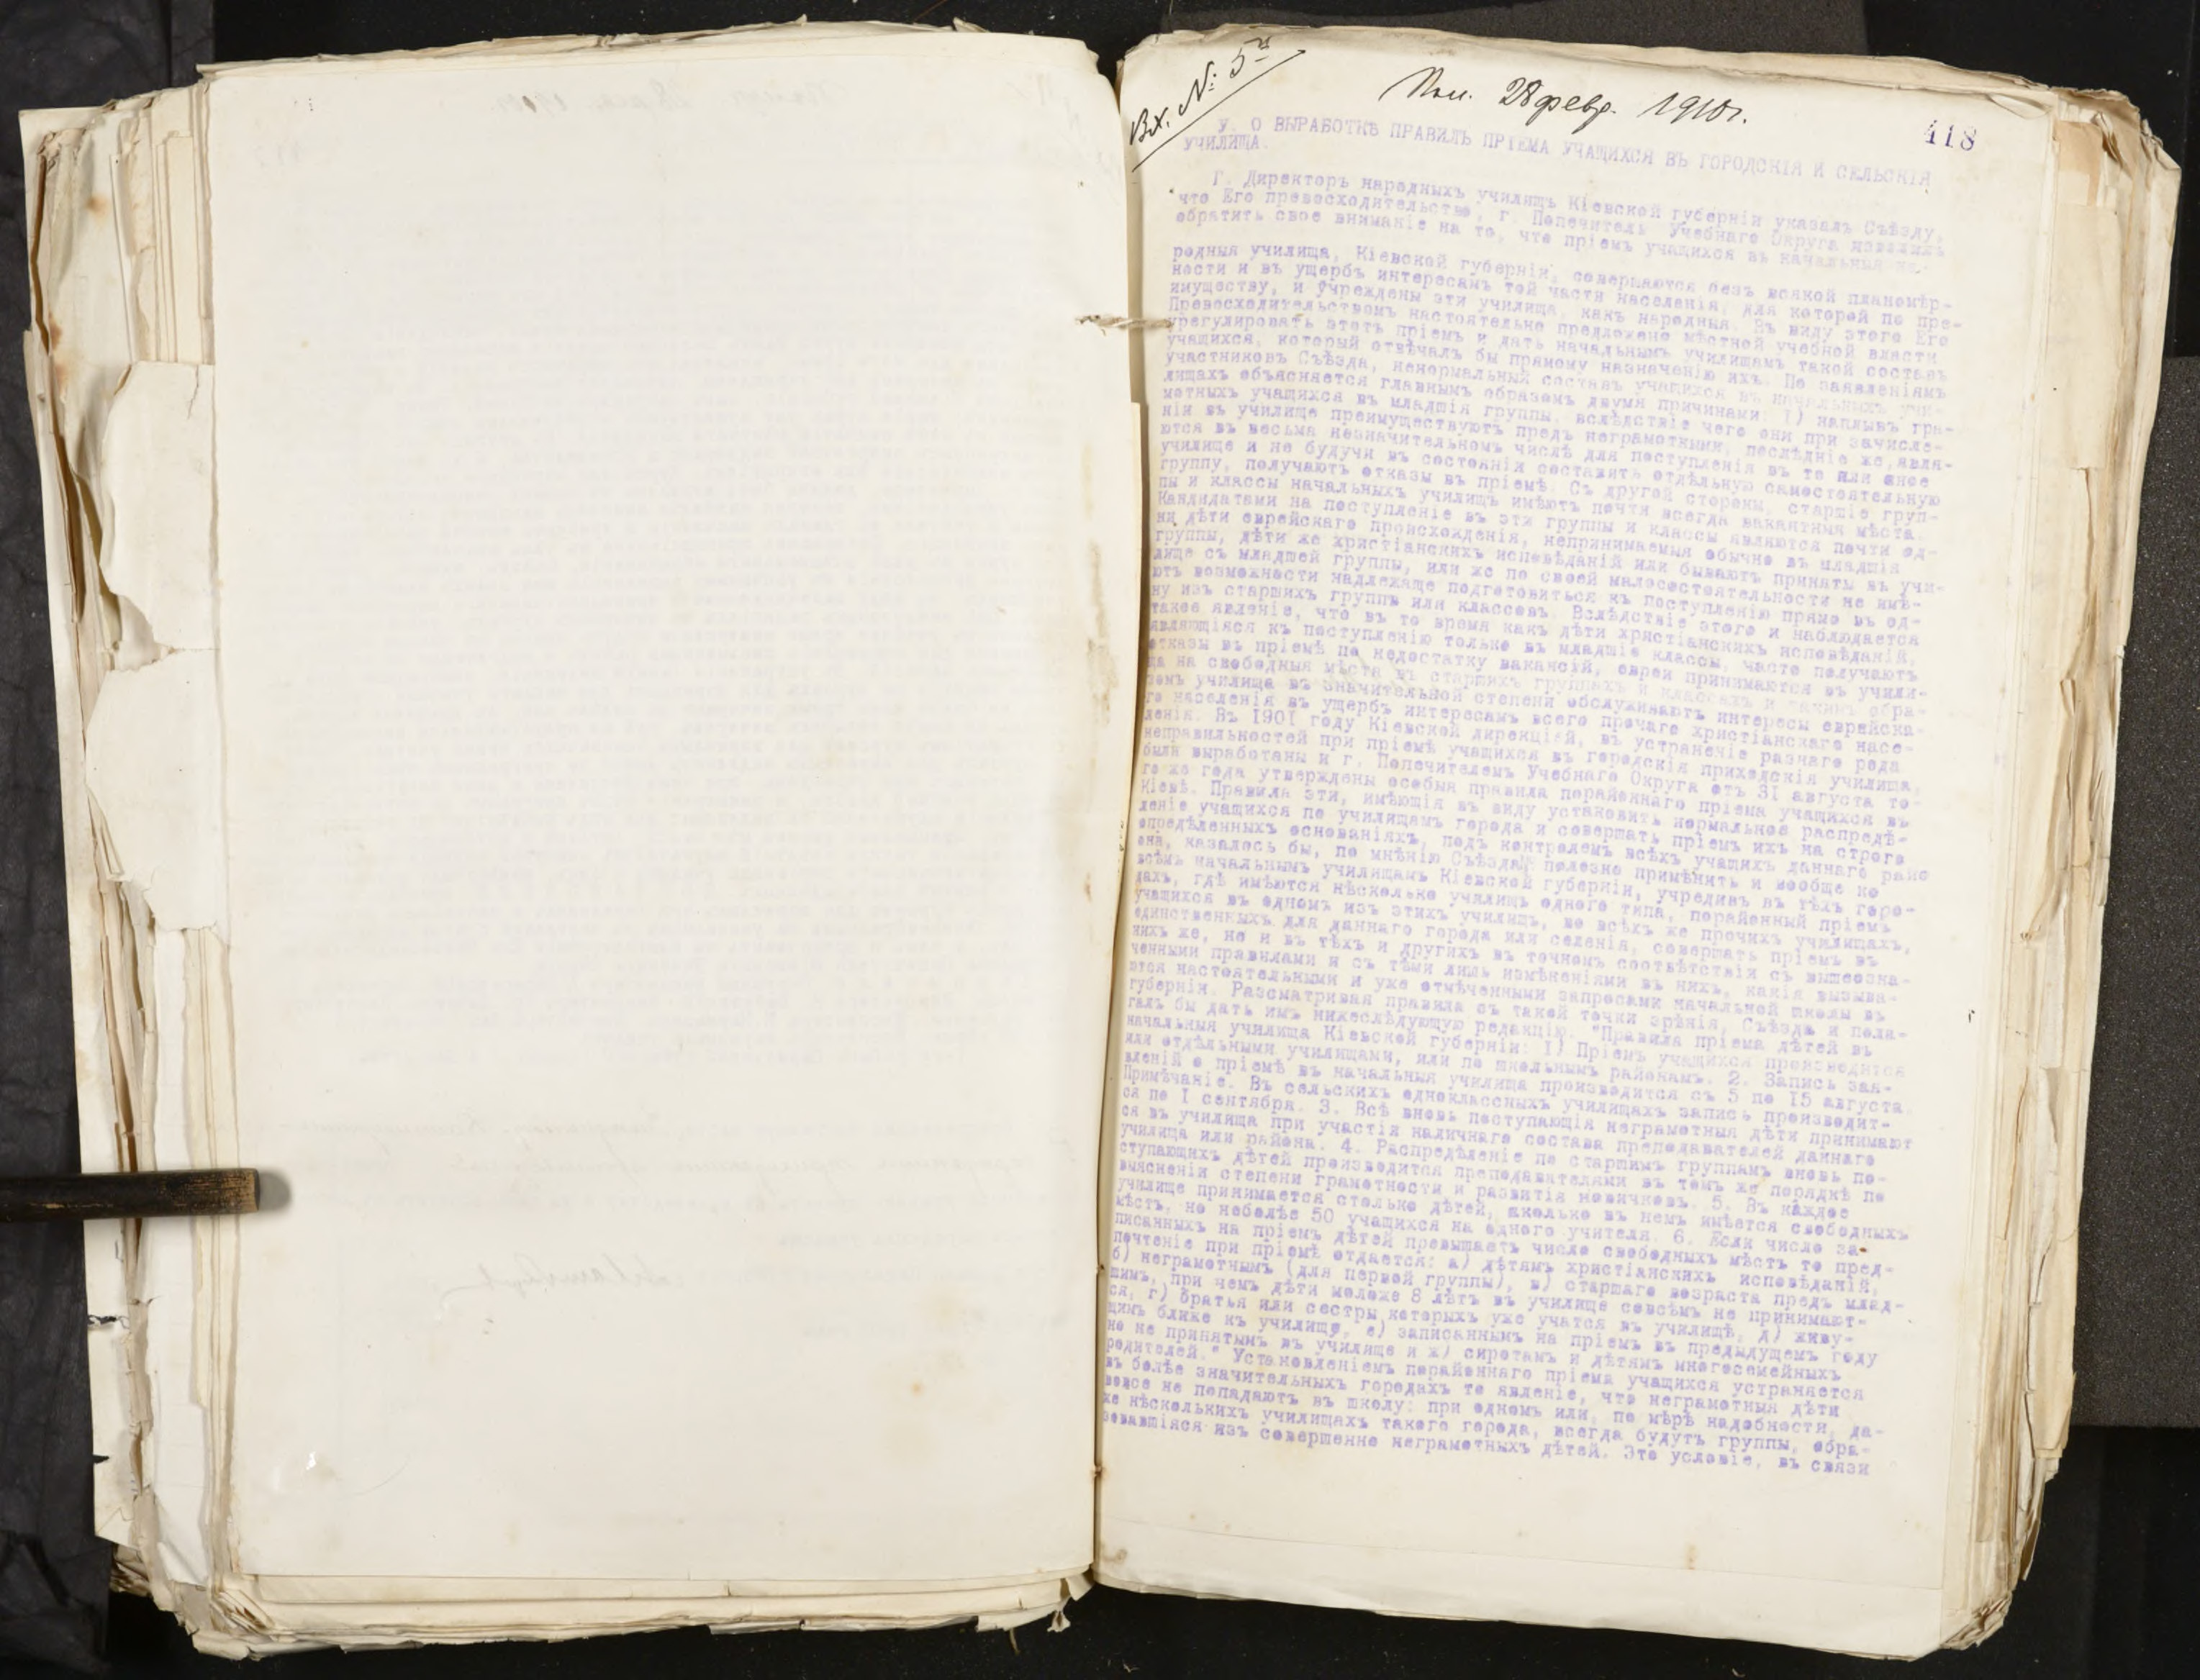 Вх. №: 5
Пол. 28 февр. 1910г.
418
У. О ВЫРАБОТКѢ ПРАВИЛЪ ПРІЕМА УЧАЩИХСЯ ВЪ ГОРОДСКІЯ И СЕЛЬСКІЯ
УЧИЛИЩА.
Г. Директоръ народныхъ училищъ Кіевской губерніи указалъ Съѣзду,
что Его превосходительство, г. Попечитель Учебнаго Округа изволилъ
обратить свое вниманіе на то, что пріемъ учащихся въ начальныя на-
родныя училища, Кіевской губерніи, совершаются безъ всякой планомѣр-
ности и въ ущербъ интересамъ той части населенія, для которой по пре-
имуществу, и учреждены эти училища, какъ народныя. Въ виду этого Его
Превосходительствомъ настоятельно предложено мѣстной учебной власти
урегулировать этотъ пріемъ и дать начальнымъ училищамъ такой составъ
учащихся, который отвѣчалъ бы прямому назначенію ихъ. По заявленіямъ
участниковъ Съѣзда, ненормальный составъ учащихся въ начальныхъ учи-
лищахъ объясняется главнымъ образомъ двумя причинами: I) наплывъ гра-
мотныхъ учащихся въ младшія группы, вслѣдствіе чего они при зачисле-
ніи въ училище преимуществуютъ предъ неграмотными, послѣдніе же, явля-
ются въ весьма незначительномъ числѣ для поступленія въ то или иное
училище и не будучи въ состояніи составить отдѣльную самостоятельную
группу, получаютъ отказы въ пріемѣ. Съ другой стороны, старшіе груп-
пы и классы начальныхъ училищъ имѣютъ почти всегда вакантныя мѣста.
Кандидатами на поступленіе въ эти группы и классы являются почти од-
ни дѣти еврейскаго происхожденія, непринимаемыя обычно въ младшія
группы, дѣти же христіанскихъ исповѣданій или бываютъ приняты въ учи-
лище съ младшей группы, или же по своей малосостоятельности не имѣ-
ютъ возможности надлежаще подготовиться къ поступленію прямо въ од-
ну изъ старшихъ группъ или классовъ. Вслѣдствіе этого и наблюдается
такое явленіе, что въ то время какъ дѣти христіанскихъ исповѣданій,
являющіяся къ поступленію только въ младшіе классы, часто получаютъ
отказы въ пріемѣ по недостатку вакансій, евреи принимаются въ учили-
ща на свободныя мѣста въ старшихъ группахъ и классахъ и такимъ обра-
зомъ училища въ значительной степени обслуживаютъ интересы еврейска-
го населенія въ ущербъ интересамъ всего прочаго христіанскаго насе-
ленія. Въ I90I году Кіевской дирекціей, въ устраненіе разнаго рода
неправильностей при пріемѣ учащихся въ городскія приходскія училища,
были выработаны и г. Попечителемъ Учебнаго Округа отъ 3I августа то-
го же года утверждены особыя правила порайоннаго пріема учащихся въ
Кіевѣ. Правила эти, имѣющія въ виду установить нормальное распредѣ-
леніе учащихся по училищамъ города и совершать пріемъ ихъ на строго
опредѣленныхъ основаніяхъ, подъ контролемъ всѣхъ учащихъ даннаго райо
она, казалось бы, по мнѣнію Съѣзда, полезно примѣнить и вообще ко
всѣмъ начальнымъ училищамъ Кіевской губерніи, учредивъ въ тѣхъ горо-
дахъ, гдѣ имѣются нѣсколько училищъ одного типа, порайонный пріемъ
учащихся въ одномъ изъ этихъ училищъ, во всѣхъ же прочихъ училищахъ,
единственныхъ для даннаго города или селенія, совершать пріемъ въ
нихъ же, но и въ тѣхъ и другихъ въ точномъ соотвѣтствіи съ вышеозна-
ченными правилами и съ тѣми лишь измѣненіями въ нихъ, какія вызыва-
ются настоятельными и уже отмѣченными запросами начальной школы въ
губерніи. Разсматривая правила съ такой точки зрѣнія, Съѣздъ и пола-
галъ бы дать имъ нижеслѣдующую редакцію: "Правила пріема дѣтей въ
начальныя училища Кіевской губерніи: I) Пріемъ учащихся производится
или отдѣльными училищами, или по школьнымъ районамъ. 2. Запись зая-
вленій о пріемѣ въ начальныя училища производится съ 5 по I5 августа.
Примѣчаніе. Въ сельскихъ одноклассныхъ училищахъ запись производит-
ся по I сентября. 3. Всѣ вновь поступающія неграмотныя дѣти принимают
ся въ училища при участіи наличнаго состава преподавателей даннаго
училища или района. 4. Распредѣленіе по старшимъ группамъ вновь по-
ступающихъ дѣтей производится преподавателями въ томъ же порядкѣ по
выясненіи степени грамотности и развитія новичковъ. 5. Въ каждое
училище принимается столько дѣтей, сколько въ немъ имѣется свободныхъ
мѣстъ, но неболѣе 50 учащихся на одного учителя. 6. Если число за-
писанныхъ на пріемъ дѣтей превышаетъ число свободныхъ мѣстъ то пред-
почтеніе при пріемѣ отдается: а) дѣтямъ христіанскихъ исповѣданій,
б) неграмотнымъ (для первой группы), в) старшаго возраста предъ млад-
шимъ, при чемъ дѣти моложе 8 лѣтъ въ училище совсѣмъ не принимают-
ся, г) братья или сестры которыхъ уже учатся въ училищѣ, д) живу-
щимъ ближе къ училищу, е) записаннымъ на пріемъ въ предыдущемъ году
но не принятымъ въ училище и ж) сиротамъ и дѣтямъ многосемейныхъ
родителей." Установленіемъ порайоннаго пріема учащихся устраняется
въ болѣе значительныхъ городахъ то явленіе, что неграмотныя дѣти
вовсе не попадаютъ въ школу: при одномъ или, по мѣрѣ надобности, да-
же нѣсколькихъ училищахъ такого города, всегда будутъ группы, обра-
зовавшіяся изъ совершенно неграмотныхъ дѣтей. Это условіе, въ связи